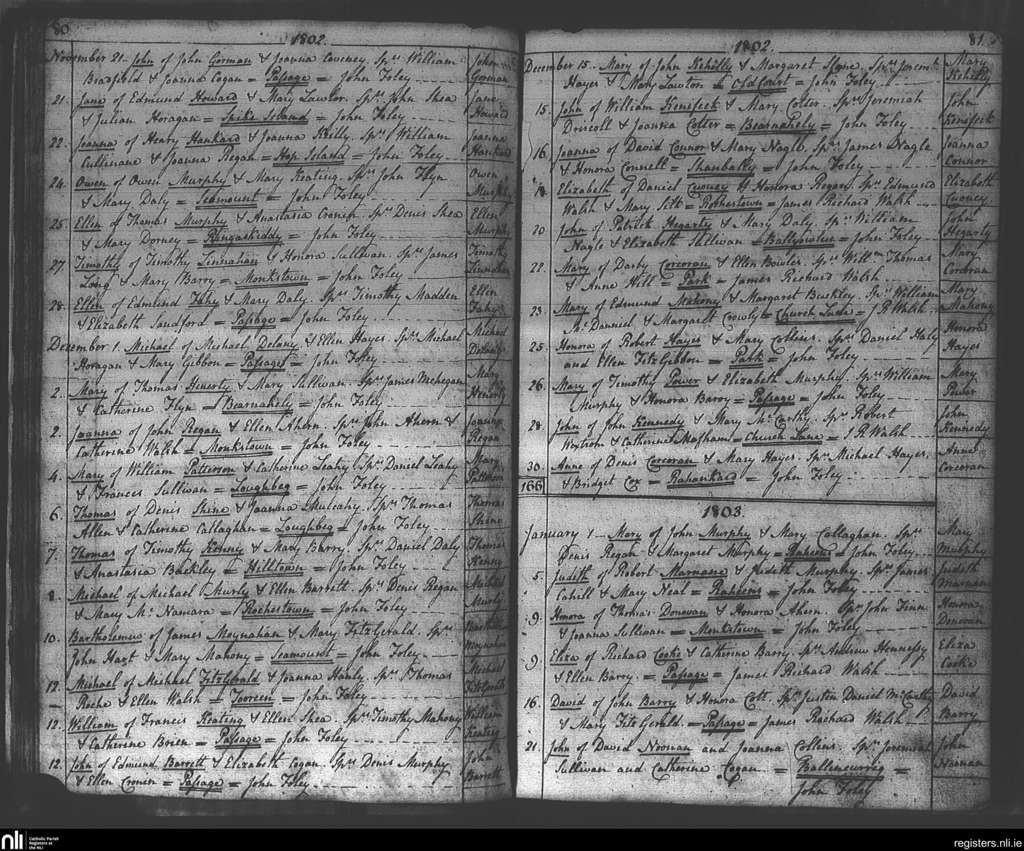 80
1802.
November 21. John of John Gorman & Joanna Coveney. Sprs William
Bradfield & Joanna Cogan = Passage = John Foley
John
Gorman
21. Jane of Edmund Howard & Mary Lawlor. Sprs John Shea
& Julian Horagan = Spike Island = John Foley
Jane
Howard
22. Joanna of Henry Hankard & Joanna Reilly. Sprs William
Cullinane & Joanna Regan = Hop Island = John Foley
Joanna
Hankard
24. Owen of Owen Murphy & Mary Keating. Sprs John Flyn
& Mary Daly = Seamount = John Foley
Owen
Murphy
25. Ellen of Thomas Murphy & Anastasia Cronin. Sprs Denis Shea
& Mary Dorney = Ringaskiddy = John Foley
Ellen
Murphy
27. Timothy of Timothy Linnahan & Honora Sullivan. Sprs James
Long & Mary Barry = Monkstown = John Foley
Timothy
Linnahan
28. Ellen of Edmund Fahy & Mary Daly. Sprs Timothy Madden
& Elizabeth Sandford = Passage = John Foley
Ellen
Fahy
December 1. Michael of Michael Delany & Ellen Hayes. Sprs Michael
Horagan & Mary Gibbon = Passage = John Foley
Michael
Delany
2. Mary of Thomas & Mary Sullivan. Sprs James Mehegan
& Catherine Flyn = Bearnahely = John Foley
Mary
2. Joanna of John Regan & Ellen Ahern. Sprs John Ahern &
Catherine Walsh = Monkstown = John Foley
Joanna
Regan
4. Mary of William Patterson & Catherine Leahy. Sprs Daniel Leahy
& Frances Sullivan = Loughbeg = John Foley
Mary
Patterson
6. Thomas of Denis Shine & Joanna Mulcahy. Sprs Thomas
Allen & Catherine Callaghan = Loughbeg = John Foley
Thomas
Shine
7. Thomas of Timothy Kenny & Mary Barry. Sprs Daniel Daly
& Anastasia Buckley = Hilltown = John Foley
Thomas
Kenny
8. Michael of Michael Murly & Ellen Barrett. Sprs Denis Regan
& Mary Mc Namara = Rochestown = John Foley
Michael
Murly
10. Bartholomew of James Moynahan & Mary FitzGerald. Sprs
John Hart & Mary Mahony = Seamount = John Foley
Moynahan
12. Michael of Michael FitzGerald & Joanna Hanly. Sprs Thomas
Roche & Ellen Walsh = Toureen = John Foley
Michael
FitzGerald
12. William of Francis Keating & Ellen Shea. Sprs Timothy Mahony
& Catherine Brien = Passage = John Foley
William
Keating
12. John of Edmund Barrett & Elizabeth Cogan. Sprs Denis Murphy
& Ellen Cronin = Passage = John Foley
John
Barrett
81
1802.
December 15. Mary of John Kehilly & Margaret Slyne. Sprs Jeremh
Hayes & Mary Lawton = Old Court = John Foley
Mary
Kehilly
15. John of William Kenifeck & Mary Cotter. Sprs Jeremiah
Driscoll & Joanna Cotter = Bearnahely = John Foley
John
Kenifeck
16. Joanna of David Connor & Mary Nagle. Sprs James Nagle
& Honora Connell = Shanbally = John Foley
Joanna
Connor
Elizabeth of Daniel Cooney & Honora Regan. Sprs Edmund
Walsh & Mary = Rochestown = James Richard Walsh
Elizabeth
Cooney
20. John of Patrick Hegarty & Mary Daly. Sprs William
Nagle & Elizabeth Sullivan = = John Foley
John
Hegarty
22. Mary of Darby Corcoran & Ellen Bowler. Sprs Willm Thomas
& Anne Hill = Park = James Richard Walsh
Mary
Corcoran
23. Mary of Edmund Mahony & Margaret Buckley. Sprs William
& Margaret Crowly = Church Lane = J R Walsh
Mary
Mahony
25. Honora of Robert Hayes & Mary Collins. Sprs Daniel Haly
and Ellen FitzGibbon = Park = John Foley
Honora
Hayes
26. Mary of Timothy Power & Elizabeth Murphy. Sprs William
Murphy & Honora Barry = Passage = John Foley
Mary
Power
28. John of John Kennedy & Mary Mc Carthy. Sprs Robert
Watson & Catherine = Church Lane = J R Walsh
John
Kennedy
30. Anne of Denis Corcoran & Mary Hayes. Sprs Michael Hayes,
& Bridget Cox = Rahankard = John Foley
Anne
Corcoran
166
1803.
January 1. Mary of John Murphy & Mary Callaghan. Sprs
Denis Regan & Margaret Murphy = Raheens = John Foley
Mary
Murphy
5. Judith of Robert Marnane & Judith Murphy. Sprs James
Cahill & Mary Neal = Raheens = John Foley
Judith
Marnane
9. Honora of Thomas Donovan & Honora Ahern. Sprs John Finn
& Joanna Sullivan = Monkstown = John Foley
Honora
Donovan
9. Eliza of Richard Cooke & Catherine Barry. Sprs Andrew Hennessy
& Ellen Barry = Passage = James Richard Walsh
Eliza
Cooke
16. David of John Barry & Honora Cott. Sprs Justin Daniel McCarthy
& Mary FitzGerald = Passage = James Richard Walsh
David
Barry
21. John of David Noonan and Joanna Collins. Sprs Jeremiah
Sullivan and Catherine Cogan = =
John Foley
John
Noonan
nli
Catholic Parish
Registers at
the NLI
registers.nli.ie